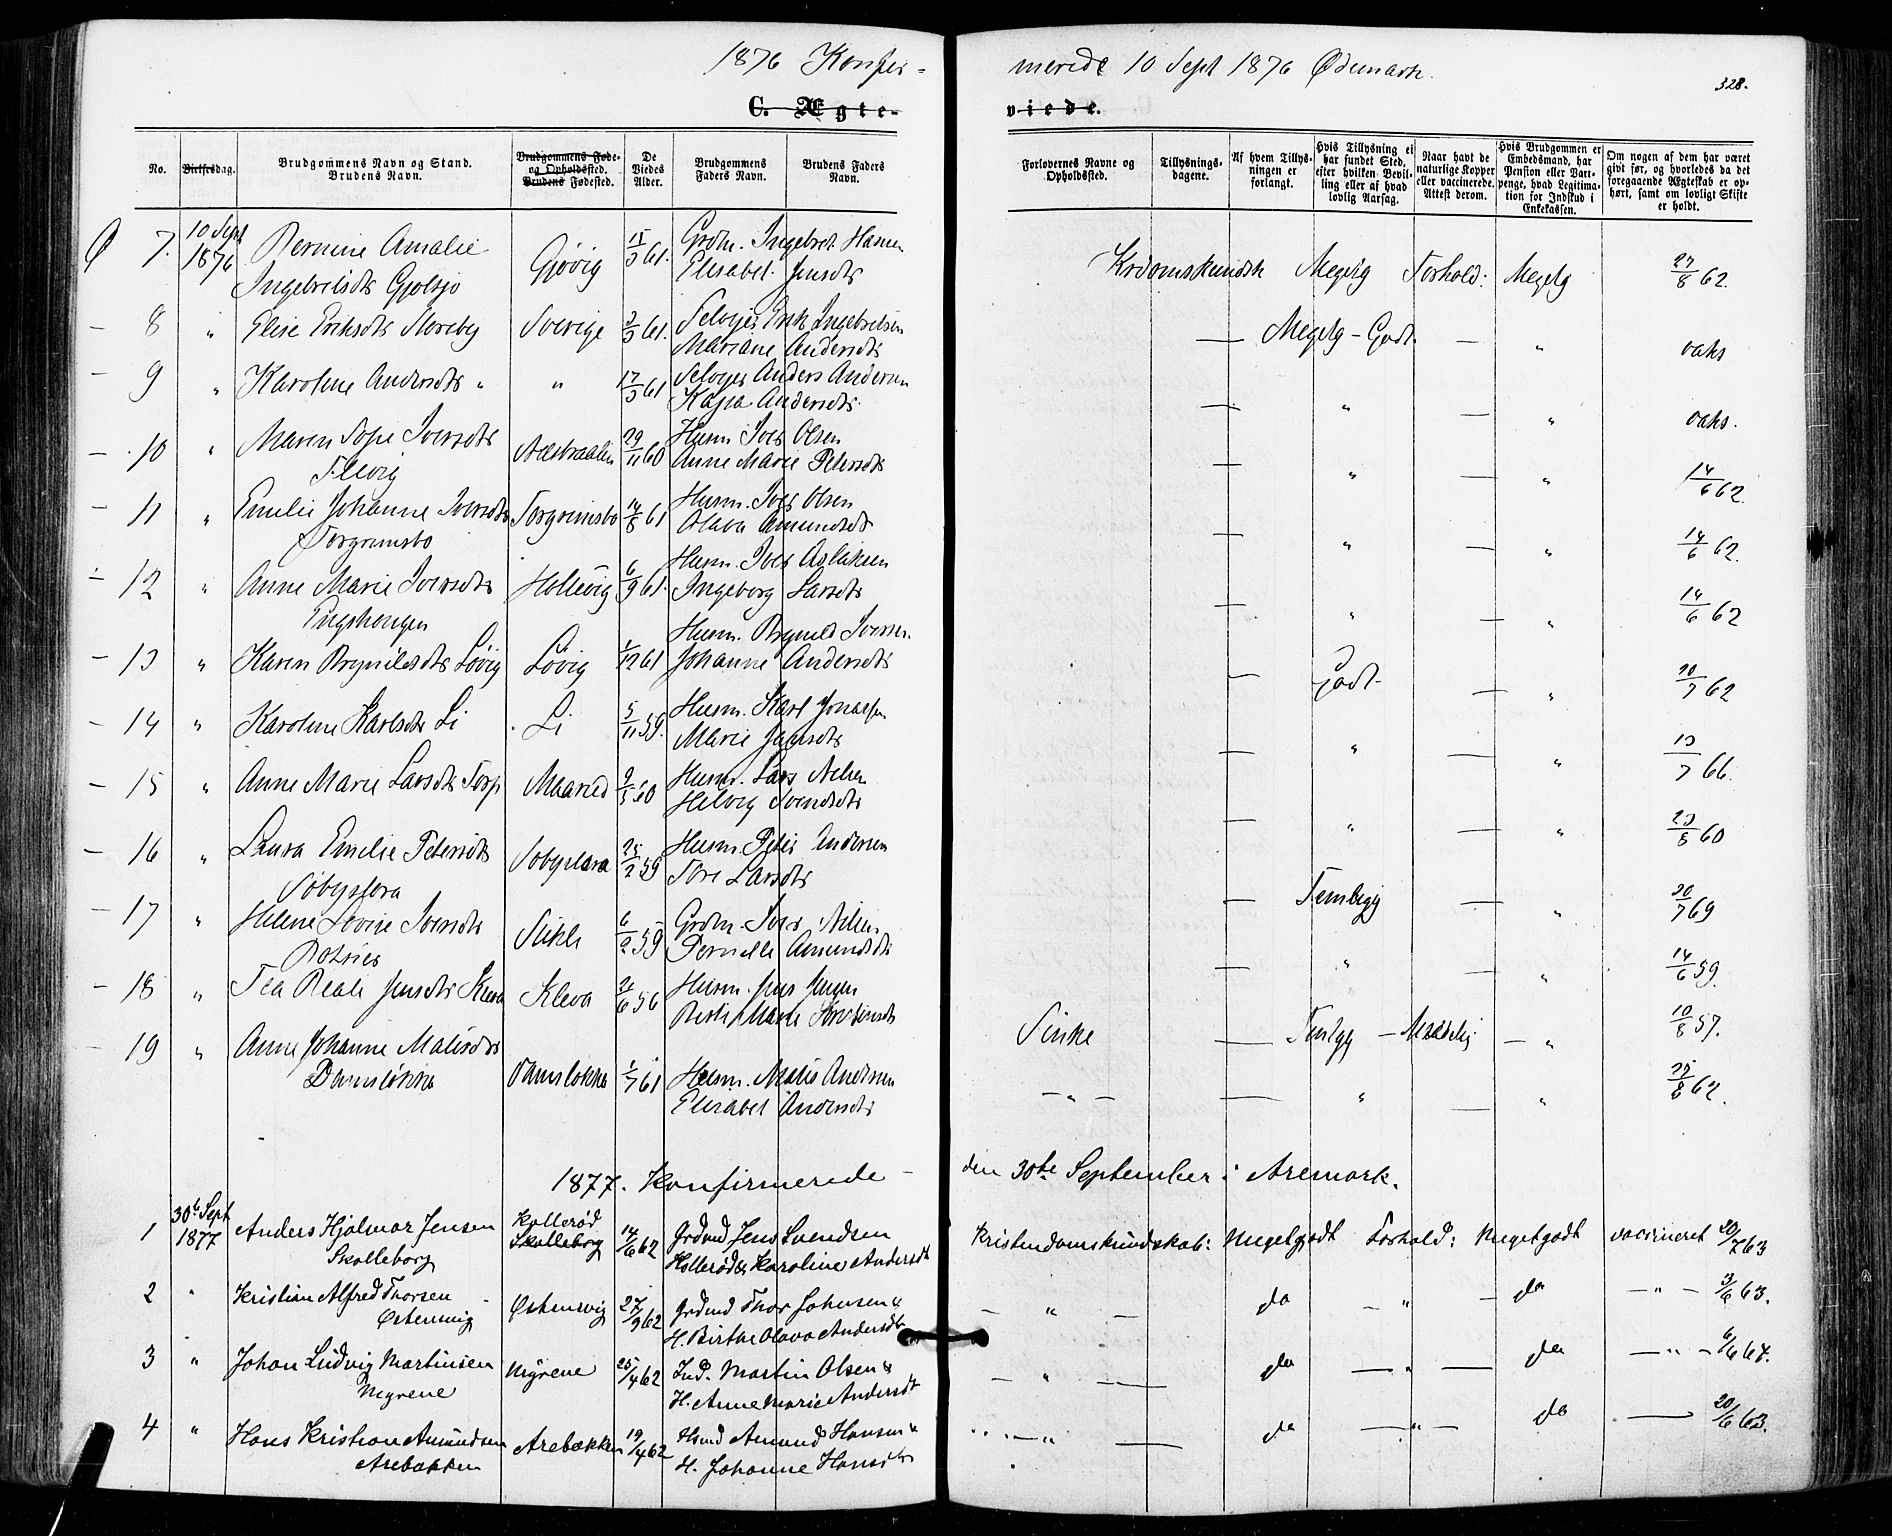 1876 Konfir=
merede 10 Sept 1876 Ødemark.
328.
C. Ægte-
viede.
No.
Vielsesdag.
Brudgommens Navn og Stand.
Brudens Navn.
Brudgommens Føde-
og Opholdssted.
Brudens Fødested.
De
Viedes
Alder.
Brudgommens
Faders Navn.
Brudens Faders
Navn.
Forlovernes Navne og
Opholdssted.
Tillysnings-
dagene.
Af hvem Tillys-
ningen er
forlangt.
Hvis Tillysning ei
har fundet Sted,
efter hvilken Bevil-
ling eller af hvad
lovlig Aarsag.
Naar havt de
naturlige Kopper
eller vaccinerede.
Attest derom.
Hvis Brudgommen er
Embedsmand, har
Pension eller Vart-
penge, hvad Legitima-
tion for Indskud i
Enkekassen.
Om nogen af dem har været
givt før, og hvorledes da det
foregaaende Ægteskab er op-
hørt, samt om lovligt Skifte
er holdt.
Ø 7. 10 Sept 1876 Bernine Amalie Gjøvig 15/3 61. Grdm. Ingebret Hansen
Ingebretsdtr Gjølsjø Elisabet Jensdtr
Krdomskundsk Megetg Forhold: Megetg 27/8 62.
8 " Elise Eriksdtr Noreby Sverige 3/3 61. Selveier Erik Ingebretsen
Mariane Andersdtr
Megetg - Godt. — " vaks
9 " Karoline Andersdtr " " 17/3 61 Selveier Anders Andersen
Kajsa Andersdtr.
— " — " vaks.
10 " Maren Sofie Iversdtr 29/11 60 Husm. Iver Olsen
Anne Marie Petersdtr
— " — " 14/6 62.
11 " Emilie Johanne Iversdtr Torgrimsbo 14/8 61 Husm. Iver Olsen
Torgrimsbo Olava Amundsdtr
— " — " 14/6 62.
12 " Anne Marie Iversdtr Holtvig 6/9 61. Husm. Iver Aslaksen
Ingeborg Larsdtr
— " — " 14/6 62
13 " Karen Brynildsdtr Løvig Løvig 1/12 61 Husm. Brynild Iversen.
Johanne Andersdtr
— Godt. — " 20/7 62
14 " Karoline Karlsdtr Li Li 5/11 59. Husm. Karl Jonassen
Marie Jansdtr
— " — " 13/7 66.
15 " Anne Marie Larsdtr Torp 9/5 60 Husm. Lars Nilsen
Helvig Svendsdtr
— " — " 23/8 60
16 " Laura Emilie Petersdtr 25/2 59 Husm. Peter Andersen
Tore Larsdtr
— Temligg — " 20/7 69
17 " Helene Lovise Iversdtr 6/2 59 Grdm. Iver Nilsen
Pernille Amundsdtr
— " — " 14/6 59.
18 " Tea Beate Jensdtr Kleva Kleva 2/6 56 Husm. Jens Jensen
Berte Marie
— Temligg — — " 10/8 57.
19 " Anne Johanne Matisdtr Damsløkka 1/7 61 Husm. Matis Andersen
Damsløkka Elisabet Andersdtr
— " — — " — " 29/8 62.
1877. Konfirmerede -
den 30te September i Aremark.
1 30te Sept 1877 Anders Hjalmar Jensen Kollerød 14/6 62 Grdmd Jens Svendsen
Skolleborg Skolleborg Kollerød & Karoline Andersdt
Kristendomskundskab: Megetgodt Forhold: Megetgodt vaccineret 20/7 63
2 " Kristian Alfred Thorsen Østensvig 27/9 62 Grdmd Thor Johnsen &
Østensvig H. Birthe Olava Andersdt
— " da — " — da — " — 3/6 63.
3 " Johan Ludvig Martinsen Myrene 25/4 62 Ind. Martin Olsen &
Myrene H. Anne Marie Andersdt
— " — da — " — da — " — 6/6 67.
4 " Hans Kristian Amundsen Arebækken 19/4 62 Hsmd Amund Hansen &
Arebækken H. Johanne Hansdtr
— " — da — " — da — 20/6 63.